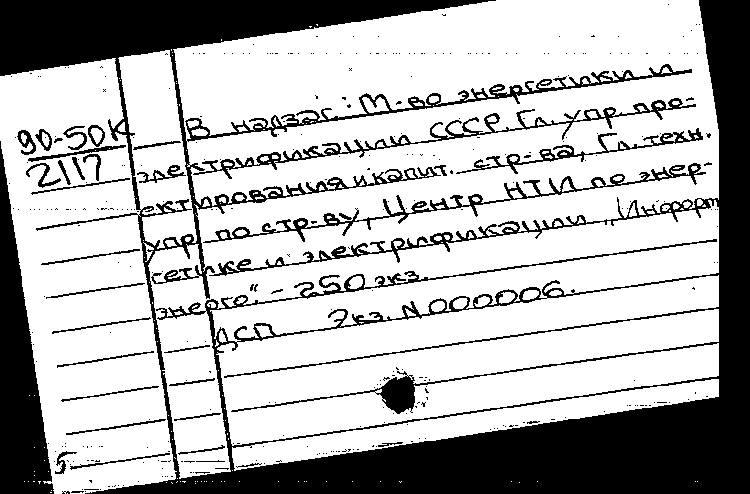 90-50К
2117
В надзаг.: М-во энергетики и
электрификации СССР. Гл. упр. про-
ектирования и капит. стр-ва, Гл. техн.
упр. по стр-ву, Центр НТИ по энер-
гетике и электрификации „Информ
энерго". - 250 экз.
ДСП Экз. N 000006.
5